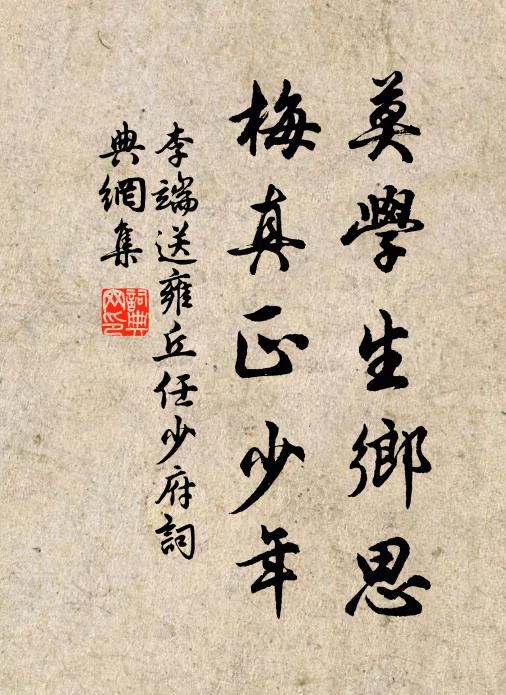 莫學生鄉思
梅真正少年
李端送雍丘任少府詞
典網集
詞典网印